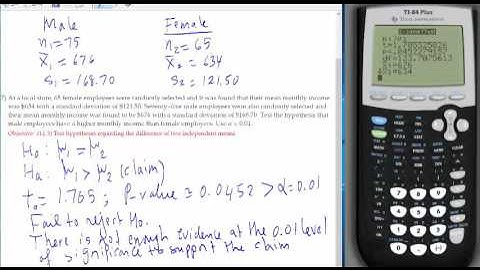 Male Female
n₁=75 n₂=65
x̄₁=676 x̄₂=634
s₁=168.70 s₂=121.50
7) At a local store, 65 female employees were randomly selected and it was found that their mean monthly income
was $634 with a standard deviation of $121.50. Seventy-five male employees were also randomly selected and
their mean monthly income was found to be $676 with a standard deviation of $168.70. Test the hypothesis that
male employees have a higher monthly income than female employees. Use α = 0.01.
Objective: (11.3) Test hypotheses regarding the difference of two independent means
H₀: μ₁ = μ₂
Ha: μ₁ > μ₂ (claim)
t₀ = 1.765 ; P-value ≅ 0.0452 > α=0.01
Fail to reject H₀.
There is not enough evidence at the 0.01 level
of significance to support the claim
TI-84 Plus
TEXAS INSTRUMENTS
x̄1=676
x̄2=634